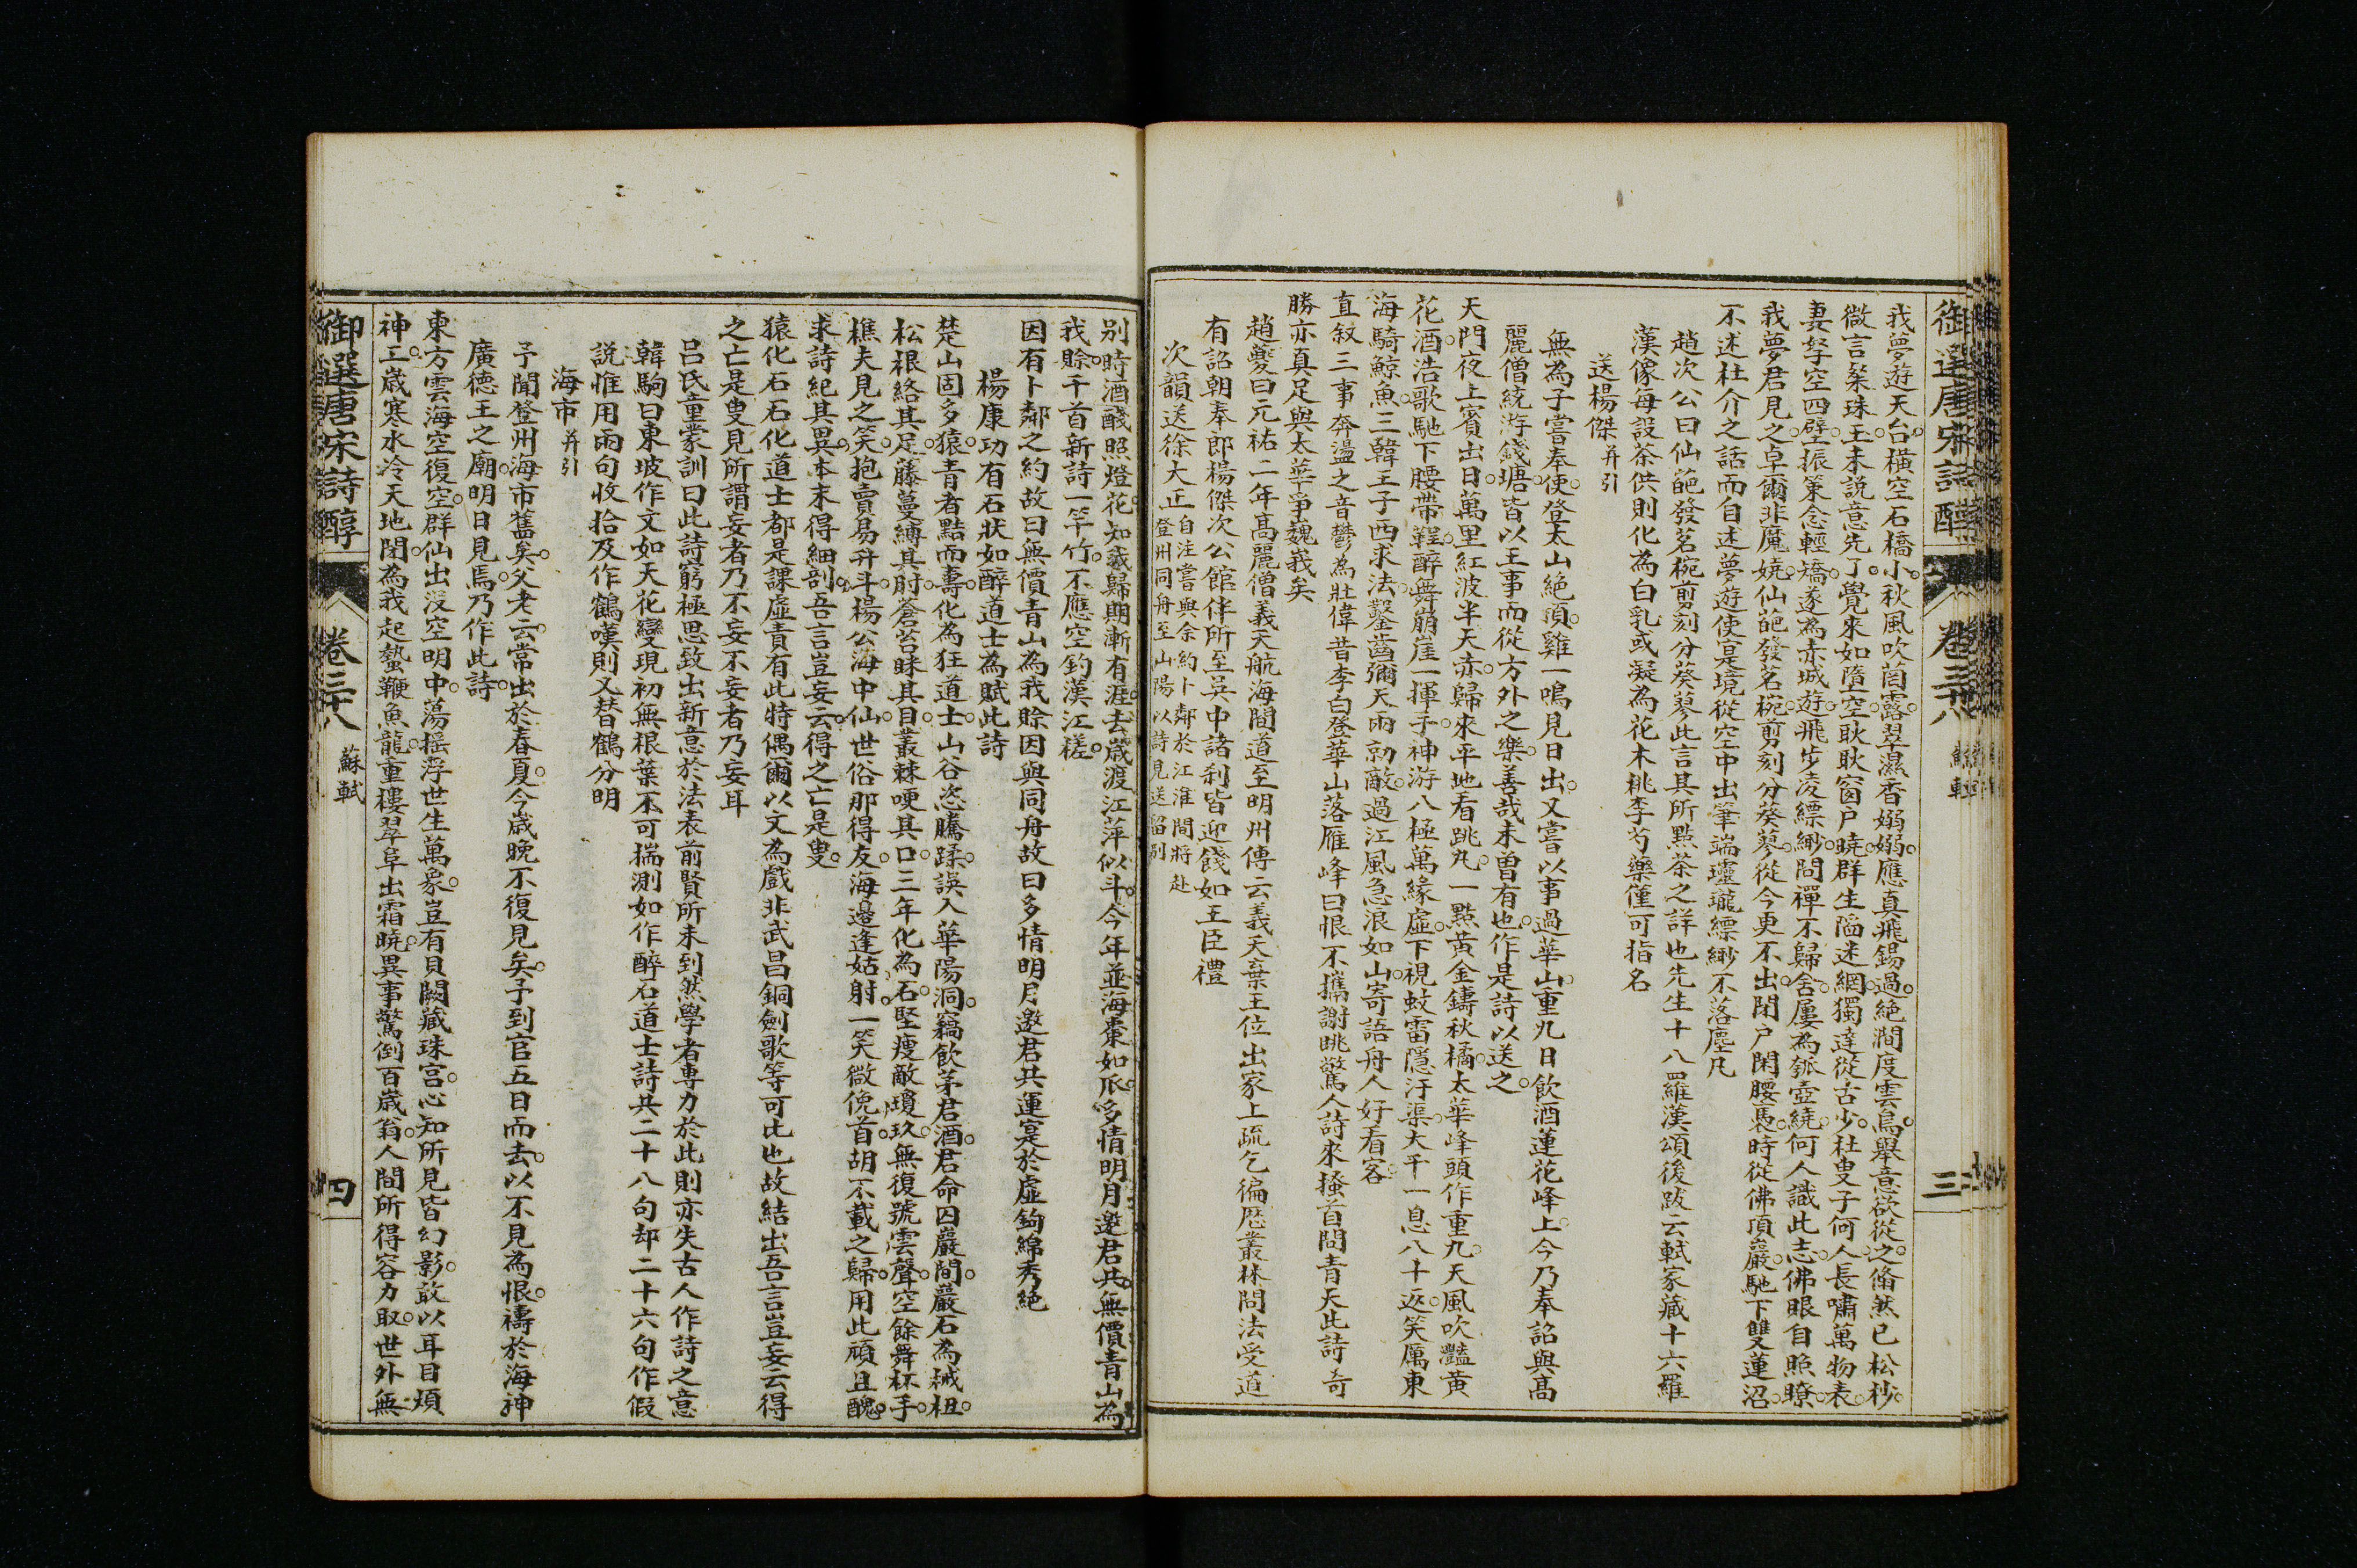 御選唐宋詩醇 卷三十八 蘇軾 三
我夢遊天台橫空石橋小秋風吹菌露翠濕香嫋嫋應真飛錫過絕澗度雲鳥舉意欲從之翛然已松杪
微言粲珠玉未說意先了覺來如墮空耿耿窗戶曉群生陷迷網獨達從古少杜叟子何人長嘯萬物表
妻孥空四壁振策念輕矯遂為赤城遊飛步凌縹緲問禪不歸舍屢為瓠壺繞何人識此志佛眼自照瞭
我夢君見之卓爾非魔嬈仙葩發茗椀剪刻分葵蓼從今更不出閉戶閑腰褭時從佛頂巖馳下雙蓮沼
不述杜介之話而自述夢遊使寔境從空中出筆端瓏瓏縹緲不落塵凡
趙次公曰仙葩發茗椀剪刻分葵蓼此言其所點茶之詳也先生十八羅漢頌後跋云軾家藏十六羅
漢像每設茶供則化為白乳或凝為花木桃李芍藥僅可指名
送楊傑并引
無為子嘗奉使登太山絕頂雞一鳴見日出又嘗以事過華山重九日飲酒蓮花峰上今乃奉詔與高
麗僧統游錢塘皆以王事而從方外之樂善哉未曾有也作是詩以送之
天門夜上賓出日萬里紅波半天赤歸來平地看跳丸一點黃金鑄秋橘太華峰頭作重九天風吹豔黃
花酒浩歌馳下腰帶鞓醉舞崩崖一揮手神游八極萬緣虛下視蚊雷隱汙渠大千一息八十返笑厲東
海騎鯨魚三韓王子西求法鑿齒彌天兩勍敵過江風急浪如山寄語舟人好看客
直敘三事奔盪之音鬱為壯偉昔李白登華山落雁峰曰恨不攜謝眺驚人詩來搔首問青天此詩奇
勝亦真足與太華爭巍峩矣
趙夔曰元祐二年高麗僧義天航海間道至明州傳云義天棄王位出家上疏乞徧歷叢林問法受道
有詔朝奉郎楊傑次公館伴所至吳中諸剎皆迎餞如王臣禮
次韻送徐大正自注嘗與余約卜鄰於江淮間將赴登州同舟至山陽以詩見送留別
別時酒醆照燈花知我歸期漸有涯去歲渡江萍似斗今年並海棗如瓜多情明月邀君共無價青山為
我賒千首新詩一竿竹不應空釣漢江槎
因有卜鄰之約故曰無價青山為我賒因與同舟故曰多情明月邀君共運寔於虛鉤綿秀絕
楊康功有石狀如醉道士為賦此詩
楚山固多猿青者黠而壽化為狂道士山谷恣騰蹂誤入華陽洞竊飲茅君酒君命囚巖間巖石為械杻
松根絡其足藤蔓縛其肘蒼苔眯其目叢棘哽其口三年化為石堅瘦敵瓊玖無復號雲聲空餘舞杯手
樵夫見之笑抱賣易升斗楊公海中仙世俗那得友海邊逢姑射一笑微俛首胡不載之歸用此頑且醜
求詩紀其異本末得細剖吾言豈妄云得之亡是叟
猿化石石化道士都是課虛責有此特偶爾以文為戲非武昌銅劍歌等可比也故結出吾言豈妄云得
之亡是叟見所謂妄者乃不妄不妄者乃妄耳
呂氏童蒙訓曰此詩窮極思致出新意於法表前賢所未到然學者專力於此則亦失古人作詩之意
韓駒曰東坡作文如天花變現初無根葉不可揣測如作醉石道士詩共二十八句却二十六句作假
說惟用兩句收拾及作鶴嘆則又替鶴分明
海市并引
予聞登州海市舊矣父老云常出於春夏今歲晚不復見矣予到官五日而去以不見為恨禱於海神
廣德王之廟明日見焉乃作此詩
東方雲海空復空群仙出沒空明中蕩搖浮世生萬象豈有貝闕藏珠宮心知所見皆幻影敢以耳目煩
神工歲寒水冷天地閉為我起蟄鞭魚龍重樓翠阜出霜曉異事驚倒百歲翁人間所得容力取世外無
御選唐宋詩醇 卷三十八 蘇軾 四